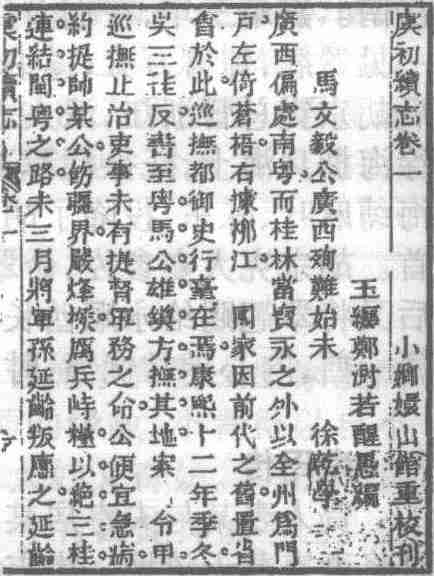 虞初續志卷一
小嫏嬛山館重校刊
玉纒鄭澍若醒愚編
馬文毅公廣西殉難始末 徐乾學
廣西偏處南粤而桂林當賓永之外以全州爲門
戸左倚蒼梧右據桞江 國家因前代之舊置省
會於此巡撫都御史行臺在焉康熙十二年季冬
吳三桂反書至粤馬公雄鎮方撫其地案 令甲
巡撫止治吏事未有提督軍務之命公便宜急病
約提帥某公飭疆界嚴烽堠厲兵峙糧以絶三桂
連結閩粤之路未三月將軍孫延齡叛應之延齡
虞初續志 卷一